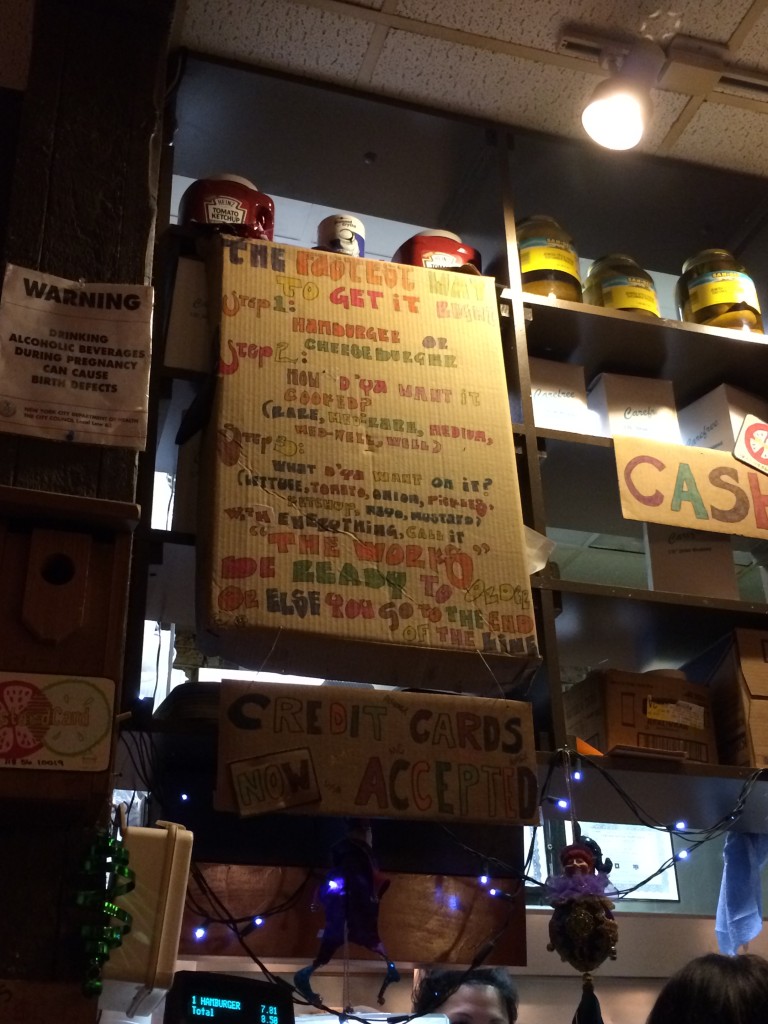 HEINZ
TOMATO
KETCHUP
WARNING
DRINKING
ALCOHOLIC BEVERAGES
DURING PREGNANCY
CAN CAUSE
BIRTH DEFECTS
THE FASTEST WAY
TO GET IT RIGHT
STEP 1:
HAMBURGER OR
CHEESEBURGER
STEP 2:
HOW D'YA WANT IT
COOKED?
(RARE, MED-RARE, MEDIUM,
MED-WELL, WELL)
STEP 3:
WHAT D'YA WANT ON IT?
(LETTUCE, TOMATO, ONION, PICKLES,
KETCHUP, MAYO, MUSTARD)
WITH EVERYTHING, CALL IT
"THE WORKS"
BE READY TO ORDER
OR ELSE YOU GO TO THE END
OF THE LINE
CREDIT CARDS
NOW ACCEPTED
CASH
Carefree
Carefree
Carefree
1 HAMBURGER 7.81
Total 8.50